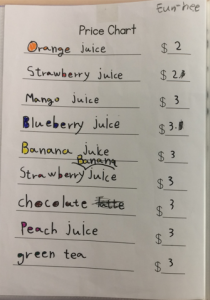 Eun-hee
Price Chart
Orange juice $ 2
Strawberry juice $ 2.
Mango juice $ 3
Blueberry juice $ 3.
Banana juke $ 3
Banana
Strawberry juice $ 3
chocolate $ 3
Peach juice $ 3
green tea $ 3